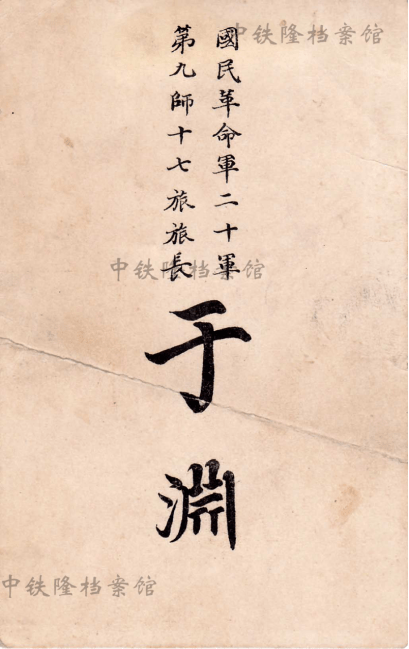 國民革命軍二十軍
第九師十七旅旅長
于淵
中铁隆档案馆
中铁隆档案馆
中铁隆档案馆